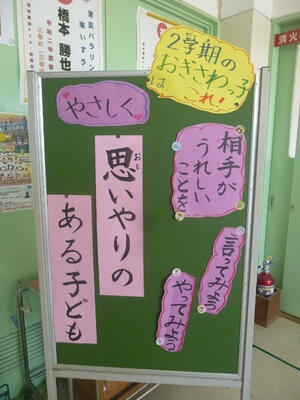 2学期の
おぎさわっ子
は これ!
やさしく、
思いやりの
おも
ある子ども
相手が
うれしい
ことを
言ってみよう
やってみよう
橋本 勝也
東京パラリン
消火